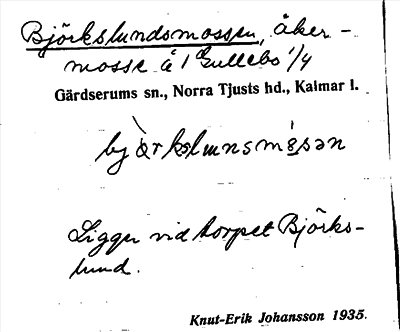 Björkslundsmossen, åker-
mosse å 1 Gullebo 1/4
Gärdserums sn., Norra Tjusts hd., Kalmar l.
bjòrkslunsmósən
Ligger vid torpet Björks-
lund.
Knut-Erik Johansson 1935.